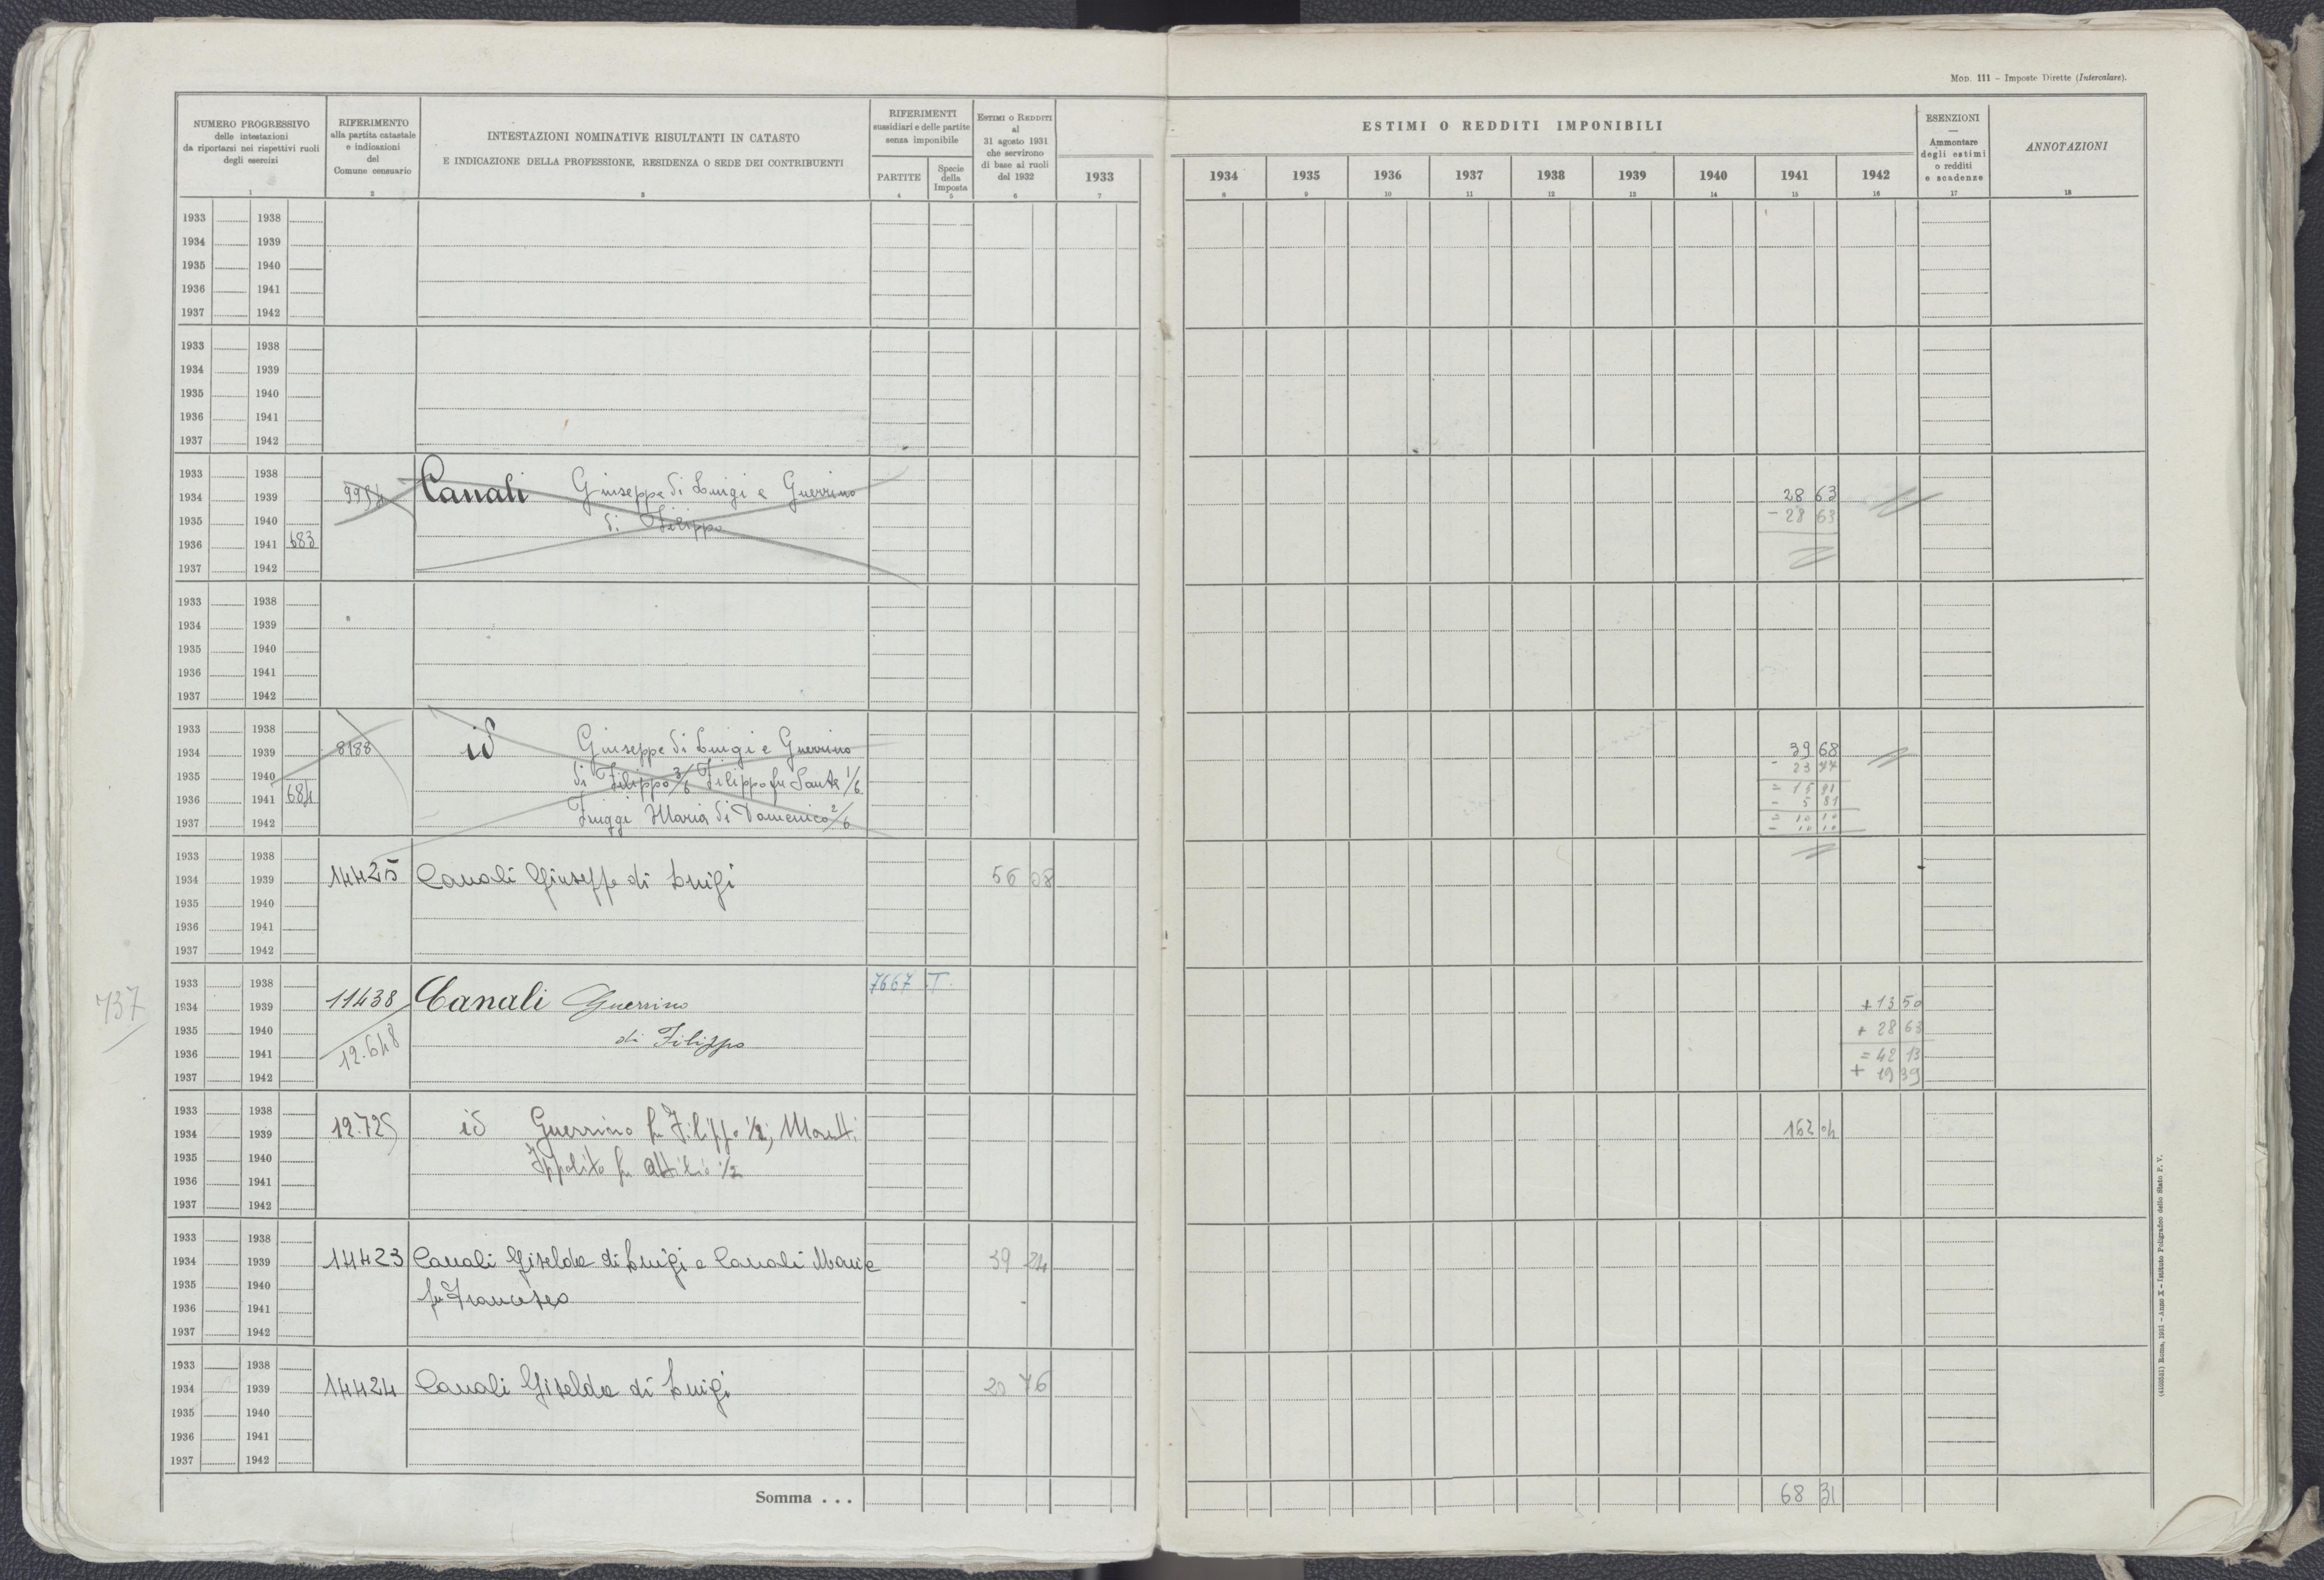 MOD. 111 – Imposte Dirette (Intercalare).
NUMERO PROGRESSIVO
delle intestazioni
da riportarsi nei rispettivi ruoli
degli esercizi
1
RIFERIMENTO
alla partita catastale
e indicazioni
del
Comune censuario
2
INTESTAZIONI NOMINATIVE RISULTANTI IN CATASTO
E INDICAZIONE DELLA PROFESSIONE, RESIDENZA O SEDE DEI CONTRIBUENTI
3
RIFERIMENTI
sussidiari e delle partite
senza imponibile
PARTITE
4
Specie
della
Imposta
5
ESTIMI O REDDITI
al
31 agosto 1931
che servirono
di base ai ruoli
del 1932
6
1933
7
ESTIMI O REDDITI IMPONIBILI
1934 1935 1936 1937 1938 1939 1940 1941 1942
8 9 10 11 12 13 14 15 16
ESENZIONI
—
Ammontare
degli estimi
o redditi
e scadenze
17
ANNOTAZIONI
18
1933 1938
1934 1939
1935 1940
1936 1941
1937 1942
1933 1938
1934 1939
1935 1940
1936 1941
1937 1942
1933 1938
1934 1939 Canali Giuseppe di Luigi e Guerrino 28 63
1935 1940 di Filippo - 28 63
1936 1941 683
1937 1942
1933 1938
1934 1939
1935 1940
1936 1941
1937 1942
1933 1938
1934 1939 8188 id Giuseppe di Luigi e Guerrino 39 68
1935 1940 di Filippo 3/6 Filippo fu Sante 1/6 -
1936 1941 684 = - 5 81
1937 1942 Maria di Domenico 2/6 = 10 10
- 10 10
1933 1938
1934 1939 14425 Canali Giuseppe di Luigi 56 08
1935 1940
1936 1941
1937 1942
1933 1938 7667 T.
737 1934 1939 11438 Canali Guerrino + 13 50
1935 1940 12.648 di Filippo + 28 63
1936 1941 = 42 13
1937 1942 + 19 39
1933 1938
1934 1939 12.725 id Guerrino fu Filippo 1/2; Moretti 162 04
1935 1940 Ippolito fu Attilio 1/2
1936 1941
1937 1942
1933 1938
1934 1939 14423 Canali Giselda di Luigi e Canali Maria 39 24
1935 1940 fu Francesco
1936 1941
1937 1942
1933 1938
1934 1939 14424 Canali Giselda di Luigi 20 76
1935 1940
1936 1941
1937 1942
Somma . . . 68 31
Roma, 1931 – Anno X – Istituto Poligrafico dello Stato P. V.